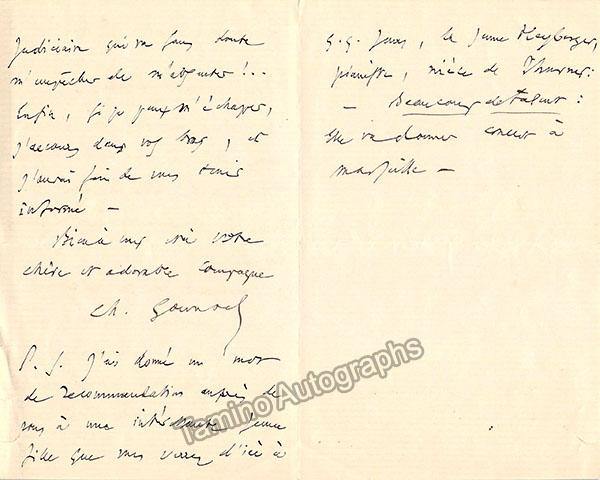 judiciaire qui va sans doute
m'empêcher de m'absenter!..
Enfin, si je puis m'échapper,
j'accours dans vos bras, et
j'aurai soin de vous tenir
informé —
Bien à vous et à votre
chère et adorable compagne
Ch. Gounod
P. S. J'ai donné un mot
de recommandation auprès de
vous à une intéressante jeune
fille que vous verrez d'ici à
jours, la jeune
pianiste, nièce de
— Beaucoup de talent:
elle va donner concert à
Marseille —
Tamino Autographs